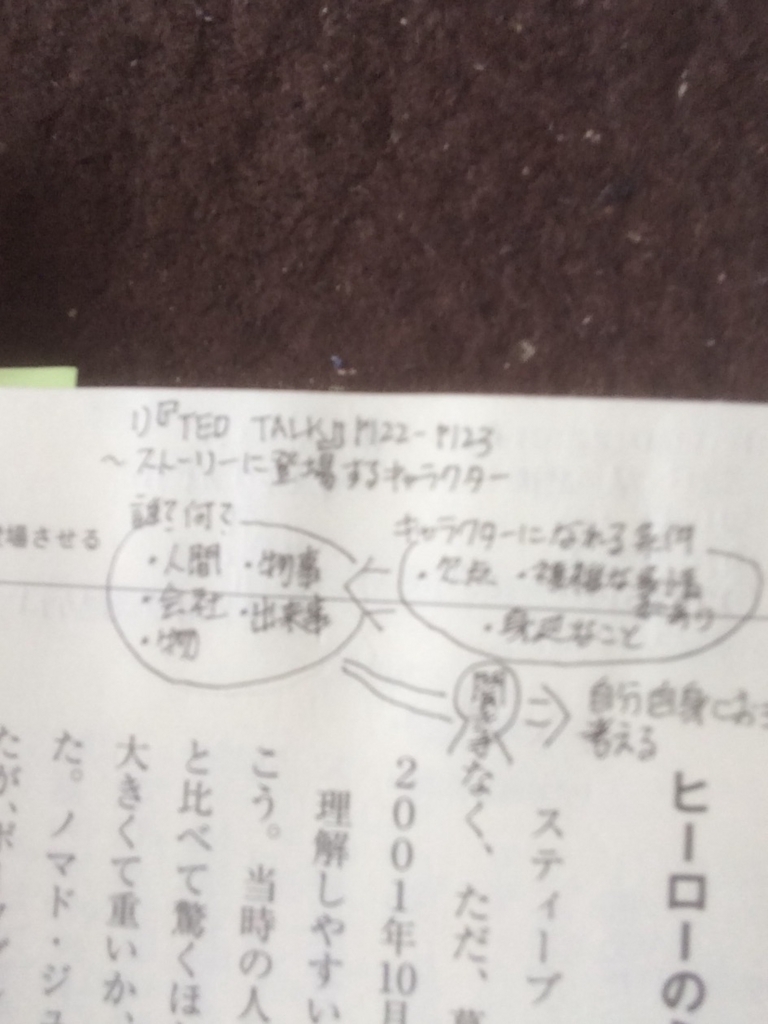 1)『TED TALKS』P122-P123
～ストーリーに登場するキャラクター
誰？何？
・人間 ・物事
・会社 ・出来事
・物
キャラクターになれる条件
・欠点 ・複雑な事情
があり
・身近なこと
聞き手
自分自身に
考える
場させる
ヒーローの
スティーブ
なく、ただ、
2001年10月
理解しやすい
こう。当時の人
と比べて驚くほ
大きくて重いか、
た。ノマド・ジュ